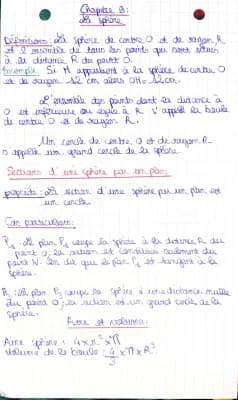 Chapitre 8:
La sphère
Définitions: La sphère de centre O et de rayon R
est l'ensemble de tous les points qui sont situés
à la distance R du point O.
Exemple: Si M appartient à la sphère de centre O
et de rayon 12 cm alors OM=12cm.
L'ensemble des points dont la distance à
O est inférieure ou égale à R s'appelle la boule
de centre O et de rayon R.
Un cercle de centre O et de rayon R
s'appelle un grand cercle de la sphère
Sections d'une sphère par un plan
propriété: La section d'une sphère par un plan est
un cercle
Cas particuliers:
le plan coupe la sphère à la distance R du
point O; la section est constituée seulement du
point N. On dit que le plan est tangent à la
sphère.
le plan coupe la sphère à une distance nulle
du point O; la section est un grand cercle de la
sphère.
Aire et volume:
Aire sphère: 4×π²×π
Volume de la boule: 4/3 × π × R³